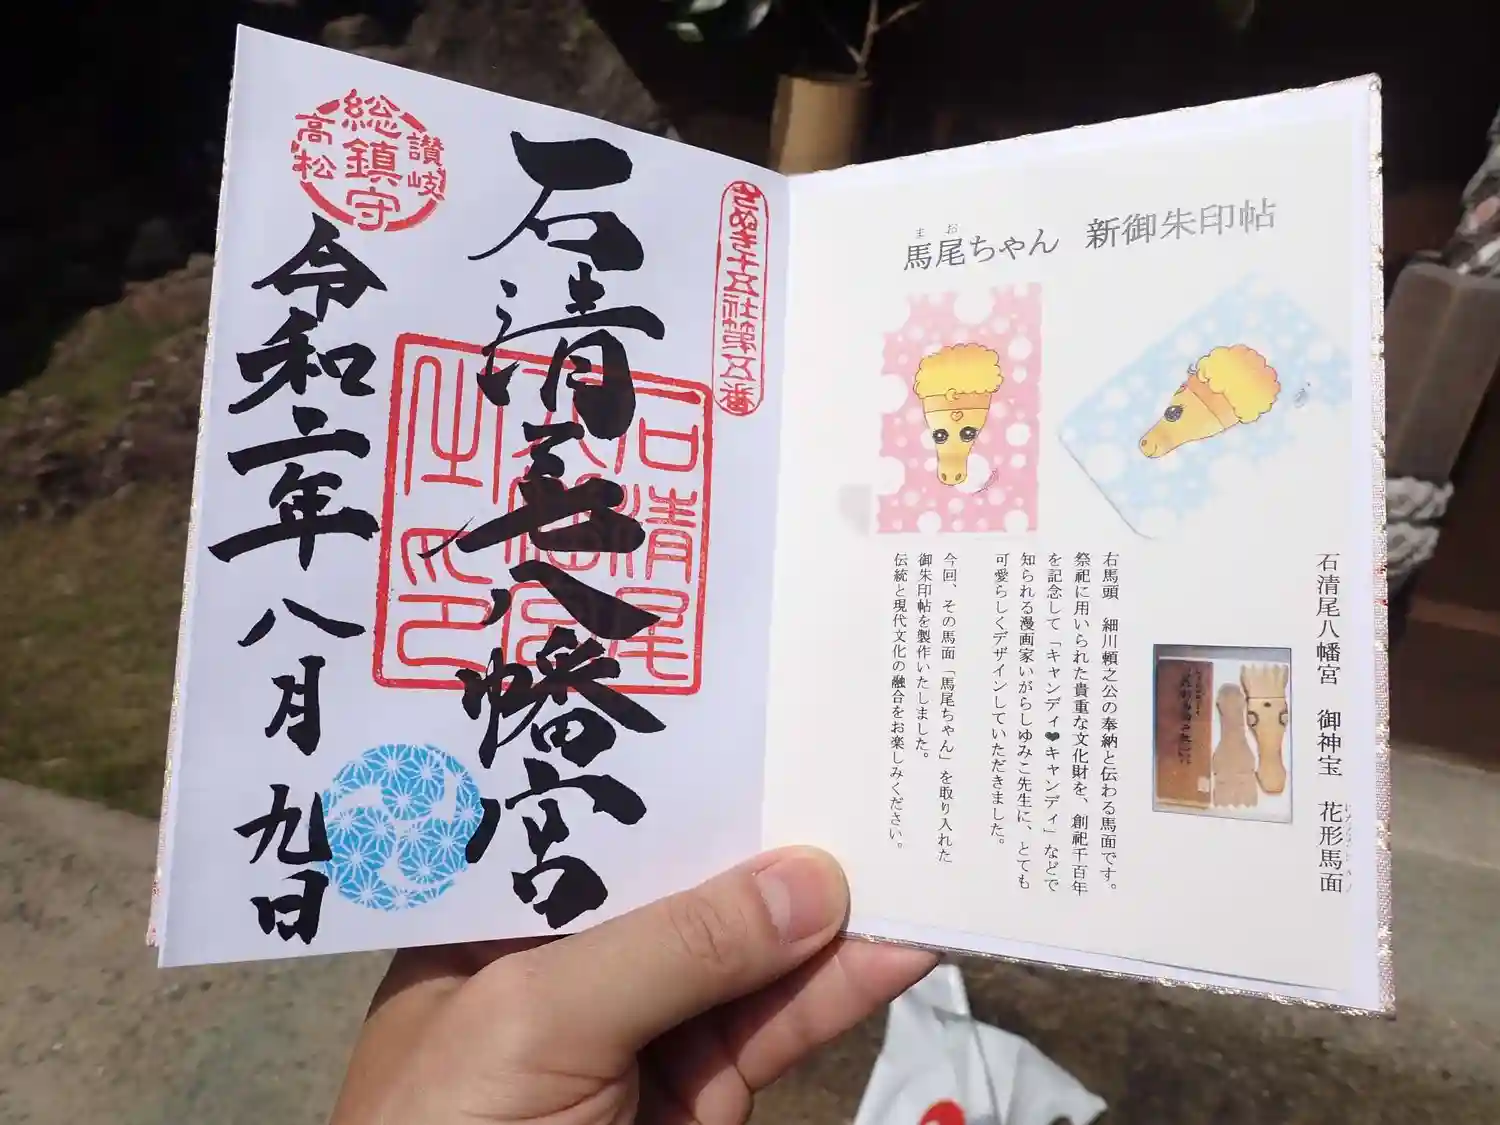 さぬき十五社第五番
石清尾八幡宮
石清尾
八幡宮
之印
讃岐
総鎮守
高松
令和二年八月九日
まお
馬尾ちゃん 新御朱印帖
石清尾八幡宮 御神宝 花形馬面
右馬頭 細川頼之公の奉納と伝わる馬面です。
祭祀に用いられた貴重な文化財を、創祀千百年
を記念して「キャンディ❤キャンディ」などで
知られる漫画家いがらしゆみこ先生に、とても
可愛らしくデザインしていただきました。
今回、その馬面「馬尾ちゃん」を取り入れた
御朱印帖を製作いたしました。
伝統と現代文化の融合をお楽しみください。